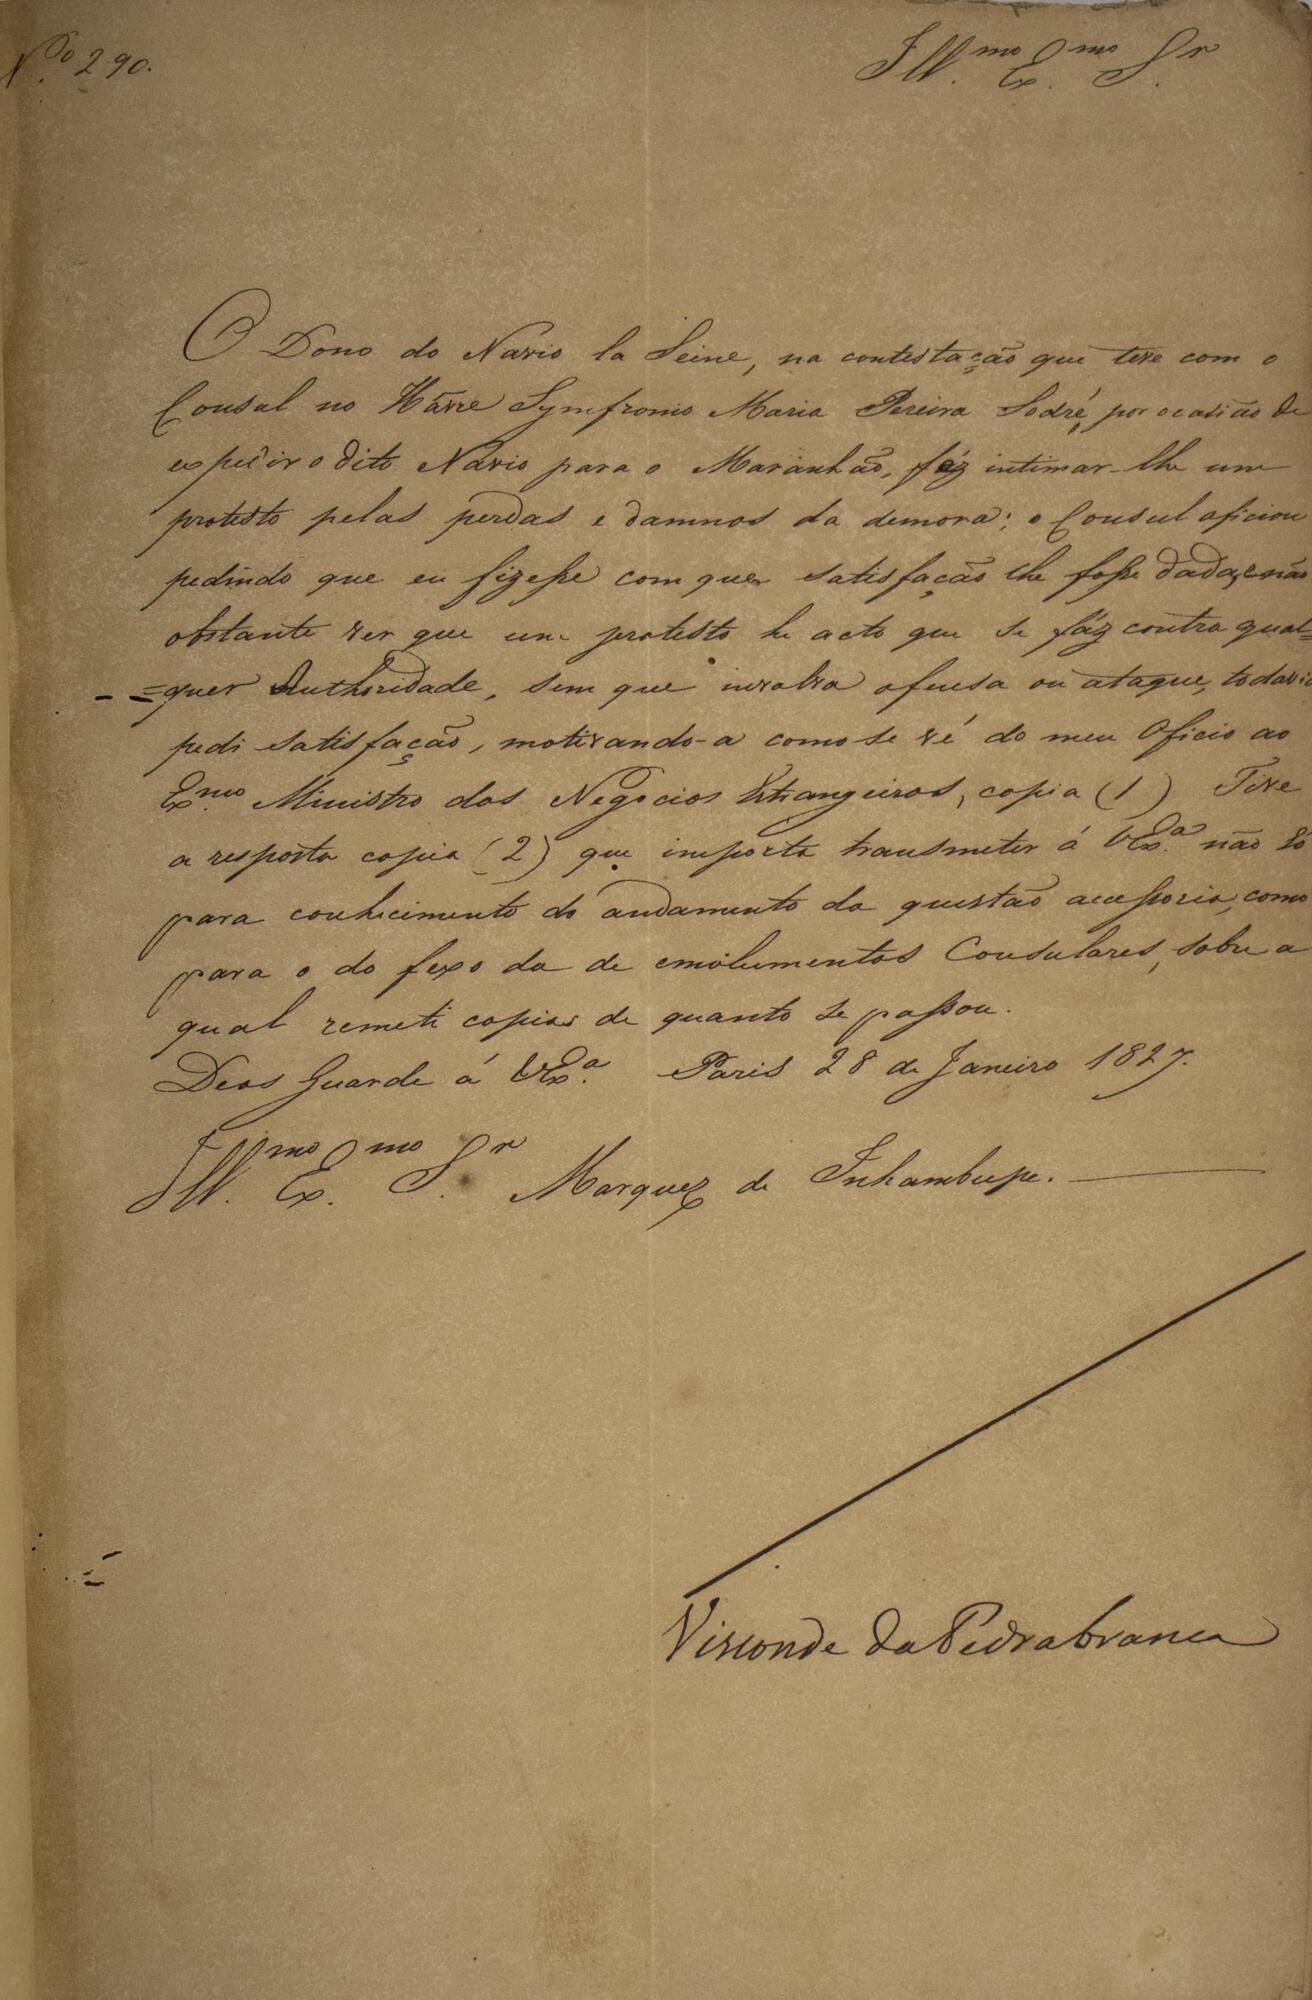 N.º 290.
Ill.mo Ex.mo Sr.
O Dono do Navio la Seine, na contestação que teve com o
Consul no Hâvre Symfronio Maria Pereira Sodré, por ocasião de
expedir o dito Navio para o Maranhão, féz intimar-lhe um
protesto pelas perdas e damnos da demora; o Consul aficiou
pedindo que eu fizesse com quer satisfação lhe fosse dada, e não
obstante ver que um protesto he acto que se fáz contra qual=
=quer Authoridade, sem que involva ofensa ou ataque, todavia
pedi satisfação, motivando-a como se vé do meu Oficio ao
Ex.mo Ministro dos Negocios Estrangeiros, copia (1) Tive
a resposta copia (2) que importa transmeter á V.Ex.ª não só
para conhecimento do andamento da questão accessoria, como
para o do fexo da de emolumentos Consulares, sobre a
qual remeti copias de quanto se passou.
Deos Guarde á V.Ex.ª Paris 28 de Janeiro 1827.
Ill.mo Ex.mo Sr. Marquez de Inhambupe.
Visconde da Pedrabranca